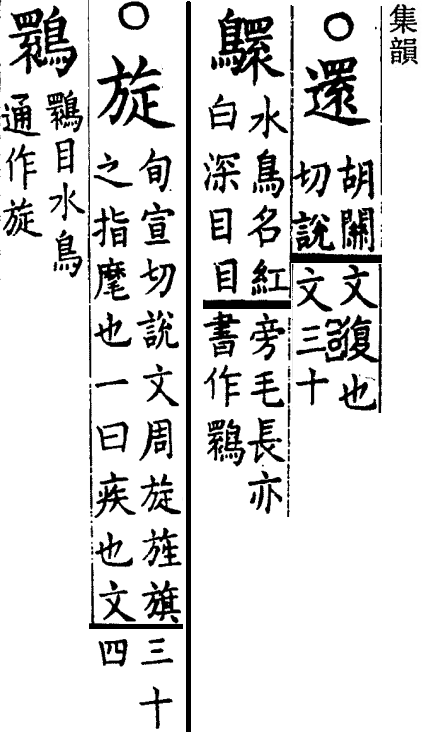 集韻
○還
胡關
切說
文復也
文三十
䴉
水鳥名紅
白深目目
旁毛長亦
書作䴉
○旋
旬宣切說文周旋旌旗
之指麾也一曰疾也文
三十
四
䴉
䴉目水鳥
通作旋